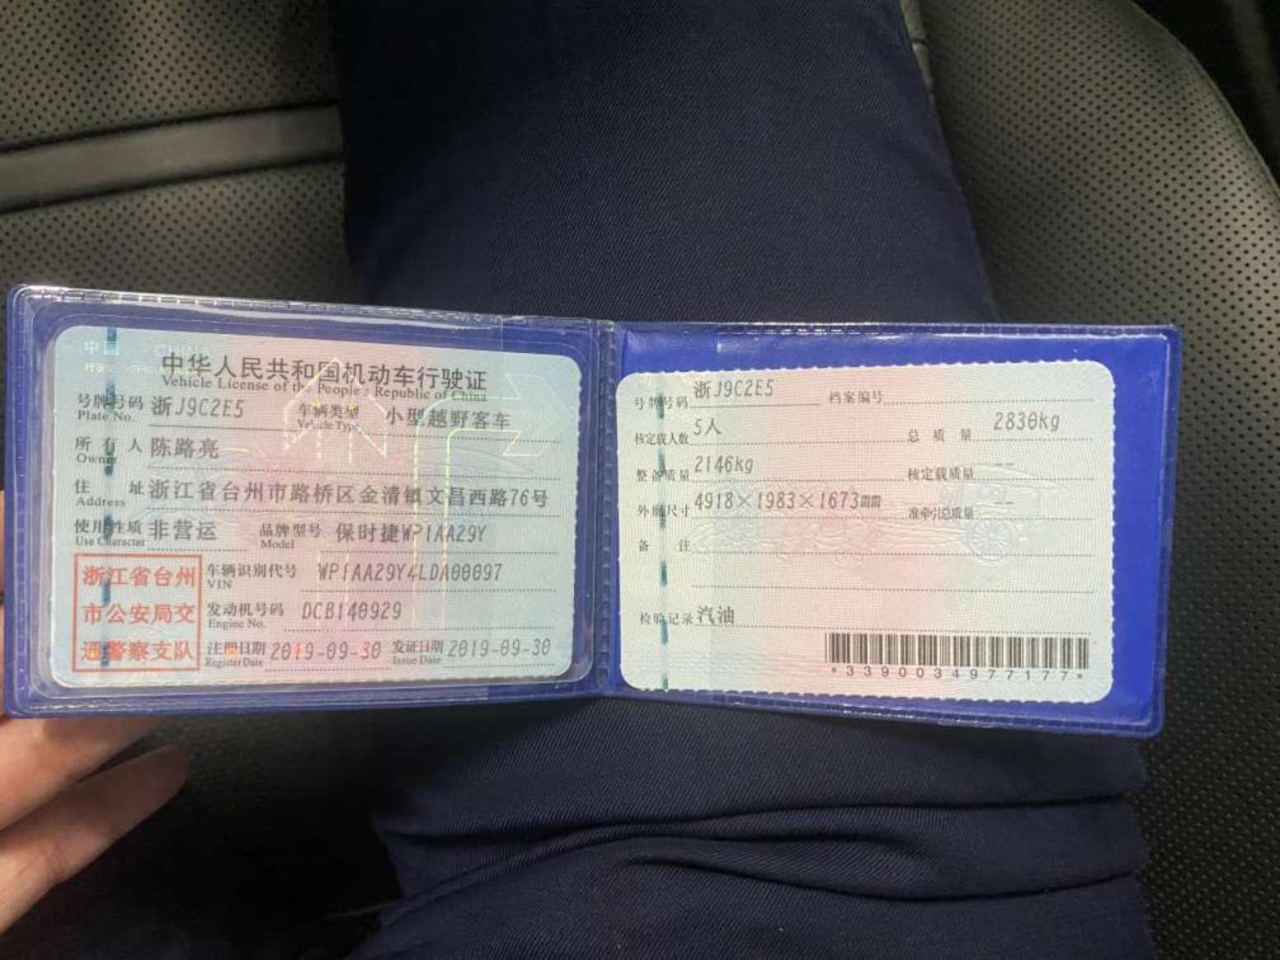 中华人民共和国机动车行驶证
Vehicle License of the People's Republic of China
号牌号码 浙J9C2E5 车辆类型 小型越野客车
Plate No. Vehicle Type
所有人 陈路亮
Owner
住址 浙江省台州市路桥区金清镇文昌西路76号
Address
使用性质 非营运 品牌型号 保时捷WP1AA29Y
Use Character Model
浙江省台州
市公安局交
通警察支队
车辆识别代号 WP1AA29Y4LDA00097
VIN
发动机号码 DCB140929
Engine No.
注册日期 2019-09-30 发证日期 2019-09-30
Register Date Issue Date
号牌号码 浙J9C2E5 档案编号
核定载人数 5人 总质量 2830kg
整备质量 2146kg 核定载质量 --
外廓尺寸 4918×1983×1673mm 准牵引总质量 --
备注
检验记录 汽油
*3390034977177*